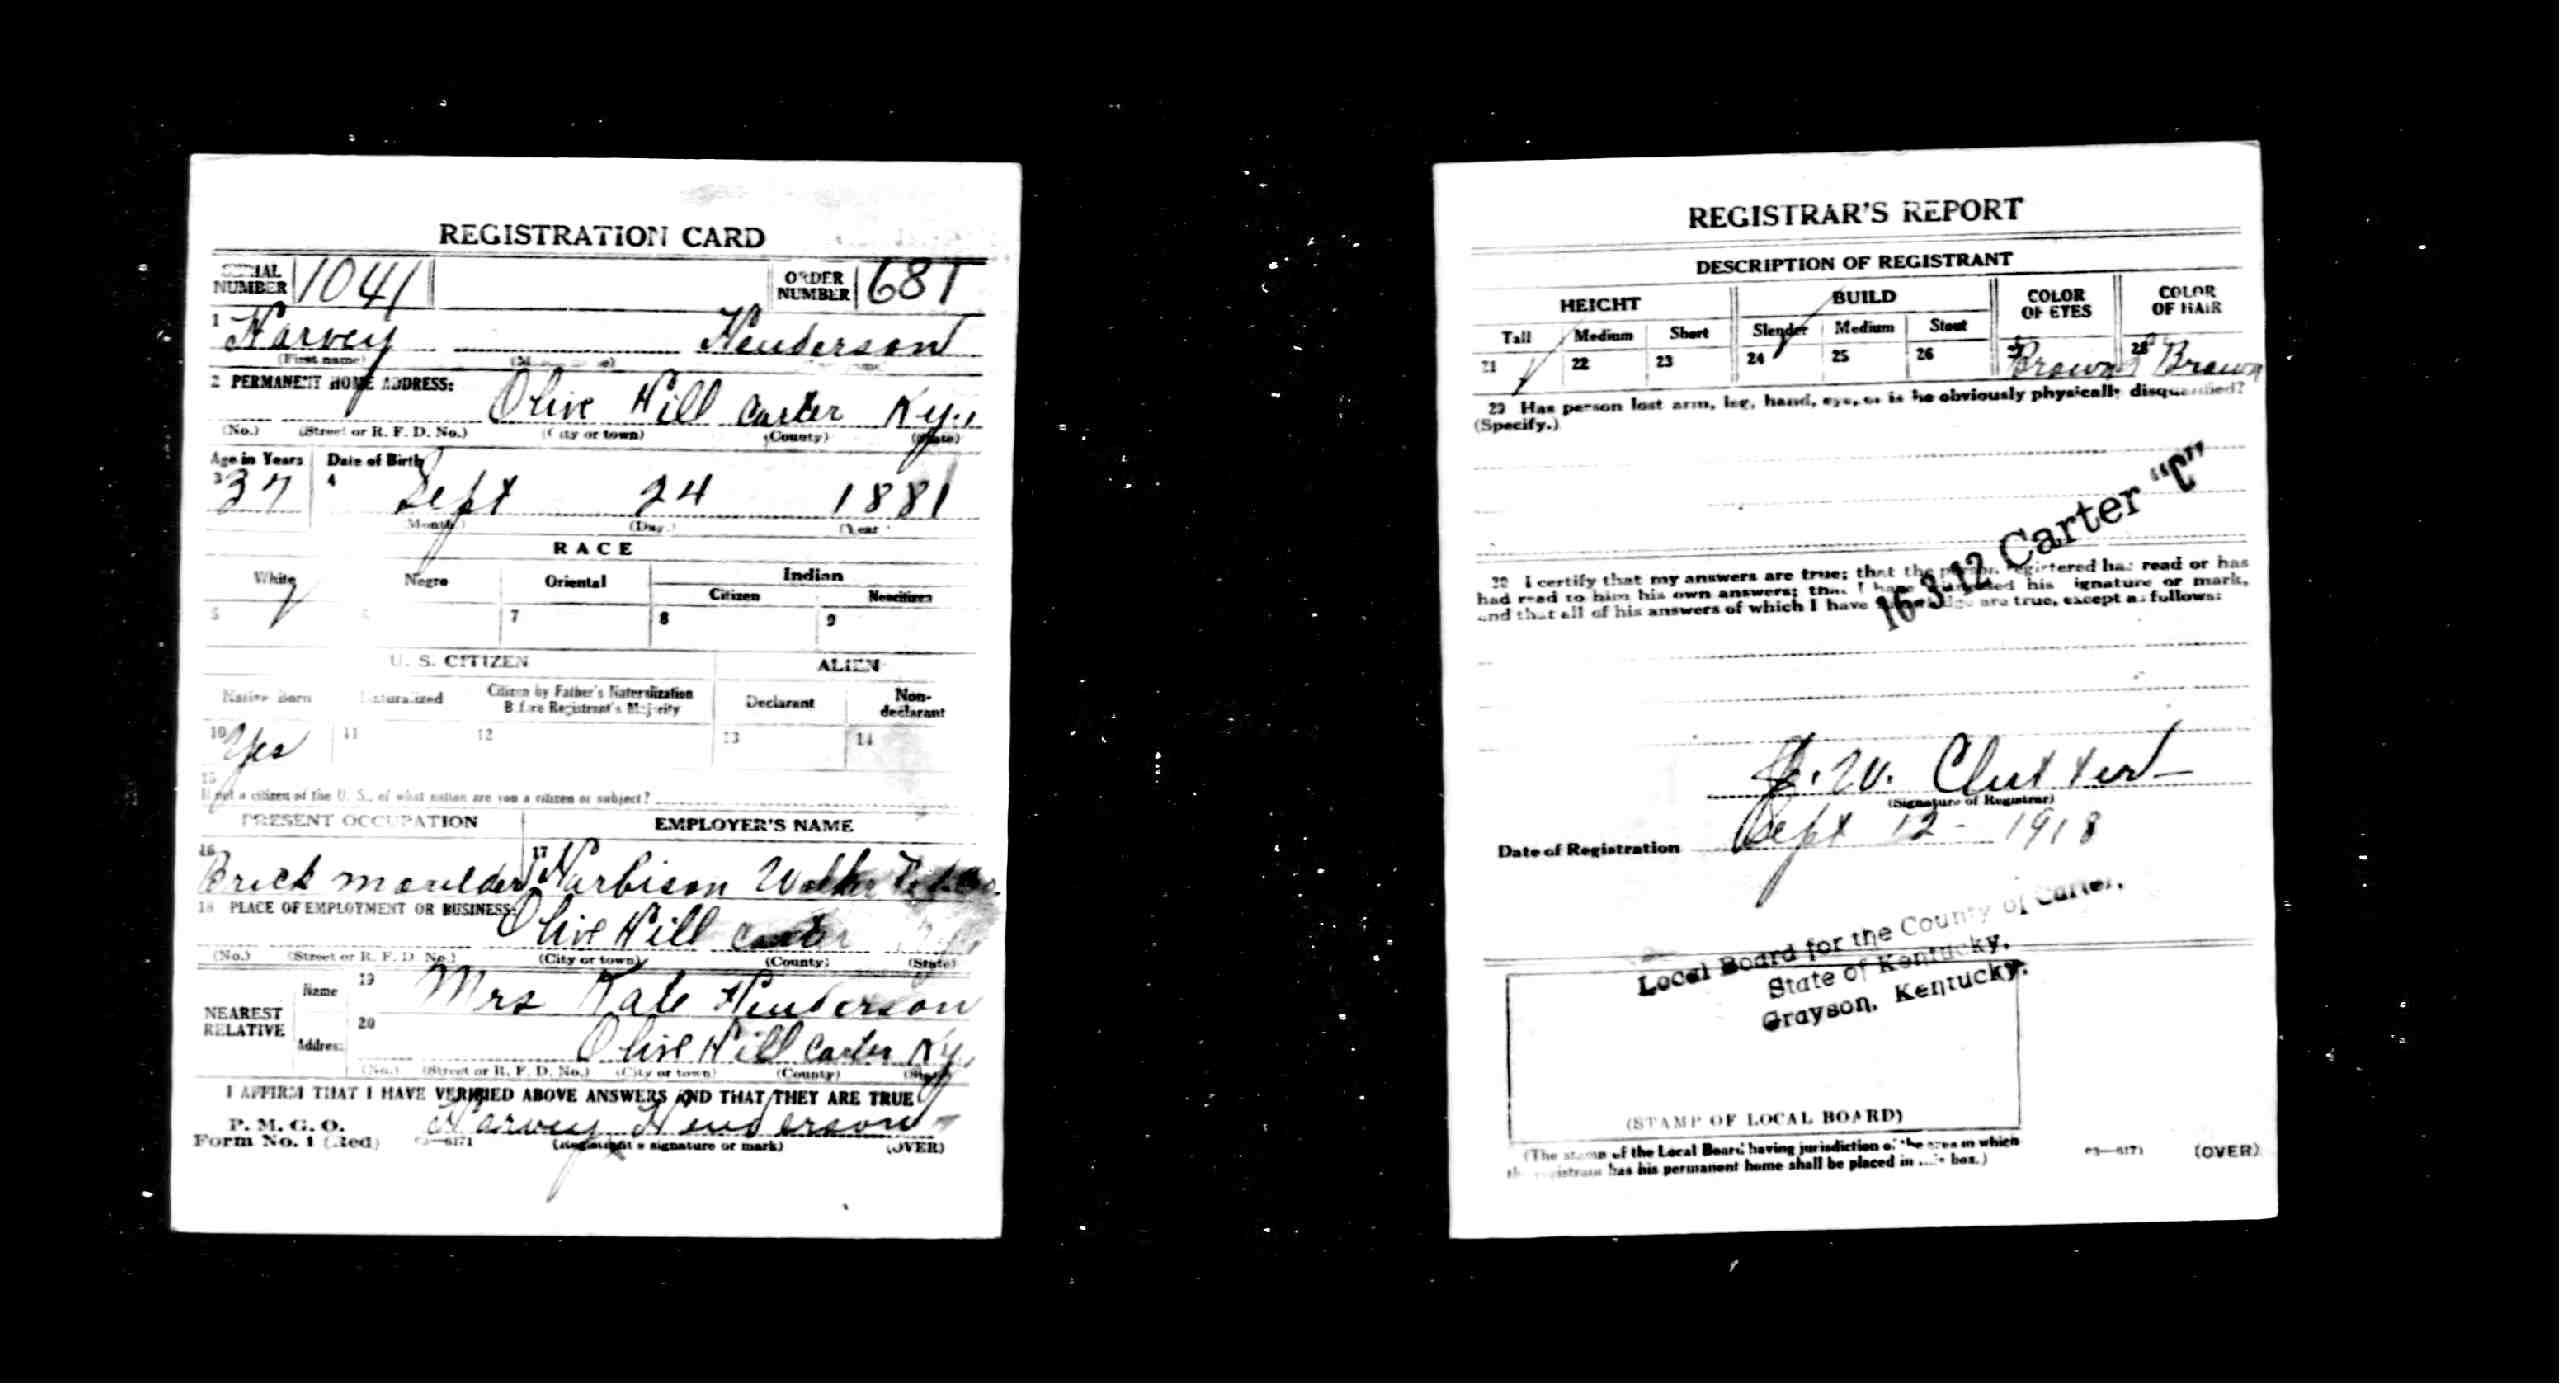 REGISTRATION CARD
SERIAL NUMBER 1041 ORDER NUMBER 681
1 Harvey Henderson
(First name)
2 PERMANENT HOME ADDRESS:
Olive Hill Carter Ky.
(No.) (Street or R. F. D. No.) (City or town) (County) (State)
Age in Years Date of Birth
3 37 4 Sept 24 1881
(Month.) (Day.) (Year
RACE
White Negro Oriental Indian
Citizen Noncitizen
5 6 7 8 9
U. S. CITIZEN ALIEN
Native Born Naturalized Citizen by Father's Naturalization Before Registrant's Majority Declarant Non-declarant
10 Yes 11 12 13 14
15
If not a citizen of the U. S., of what nation are you a citizen or subject?
PRESENT OCCUPATION EMPLOYER'S NAME
16 Brick moulder 17 Harbison Walker
18 PLACE OF EMPLOYMENT OR BUSINESS:
Olive Hill Carter
(No.) (Street or R. F. D. No.) (City or town) (County) (State)
NEAREST RELATIVE Name 19 Mrs Kate Henderson
Address 20 Olive Hill Carter Ky
(No.) (Street or R. F. D. No.) (City or town) (County) (State)
I AFFIRM THAT I HAVE VERIFIED ABOVE ANSWERS AND THAT THEY ARE TRUE
P. M. G. O.
Form No. 1 (Red) 03—6171 Harvey Henderson
(Registrant's signature or mark) (OVER)
REGISTRAR'S REPORT
DESCRIPTION OF REGISTRANT
HEIGHT BUILD COLOR OF EYES COLOR OF HAIR
Tall Medium Short Slender Medium Stout
21 22 23 24 25 26 27 Brown 28 Brown
29 Has person lost arm, leg, hand, eye, or is he obviously physically disqualified?
(Specify.)
16-3-12 Carter "C"
30 I certify that my answers are true; that the person registered has read or has
had read to him his own answers; that I have witnessed his signature or mark,
and that all of his answers of which I have knowledge are true, except as follows:
W. Clutter
(Signature of Registrar)
Date of Registration Sept 12 - 1918
Local Board for the County of Carter,
State of Kentucky.
Grayson, Kentucky.
(STAMP OF LOCAL BOARD)
(The stamp of the Local Board having jurisdiction of the area in which
the registrant has his permanent home shall be placed in this box.)
03—6171 (OVER)